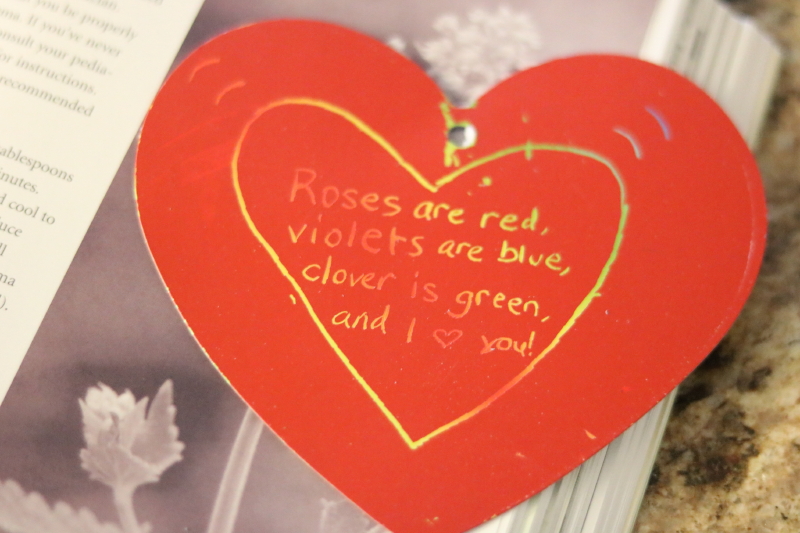 you be properly
ns. If you've never
nsult your pedia-
or instructions.
recommended
ablespoons
nutes.
d cool to
uce
ma
Roses are red,
violets are blue,
clover is green,
and I ♡ you!